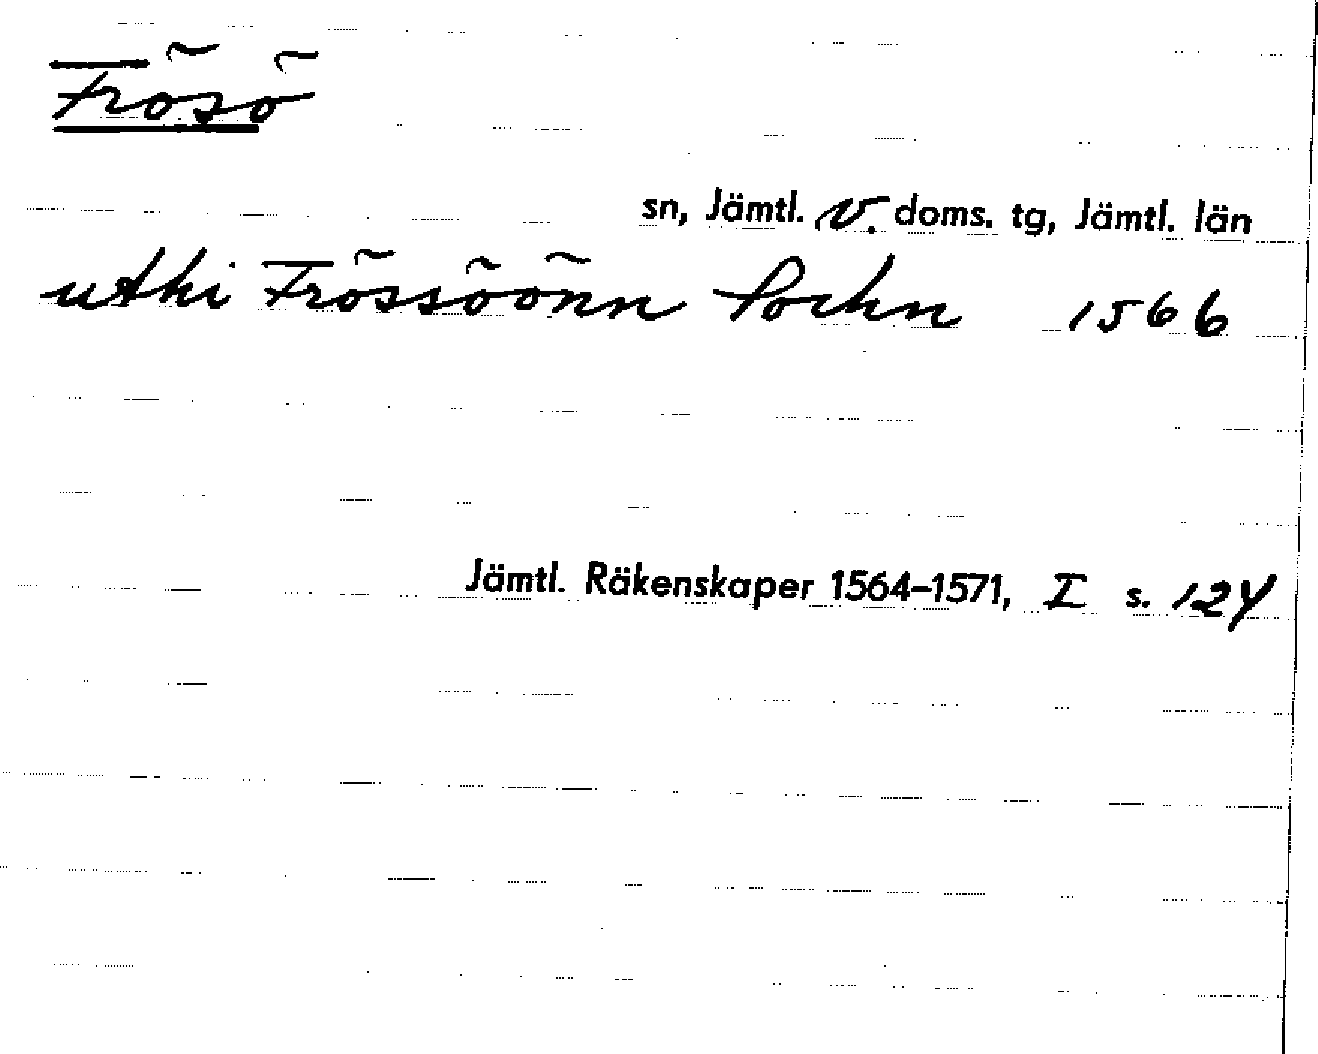 Frösö
sn, Jämtl. V. doms. tg, Jämtl. län
uthi Frössöönn Sochn 1566
Jämtl. Räkenskaper 1564-1571, I s. 124